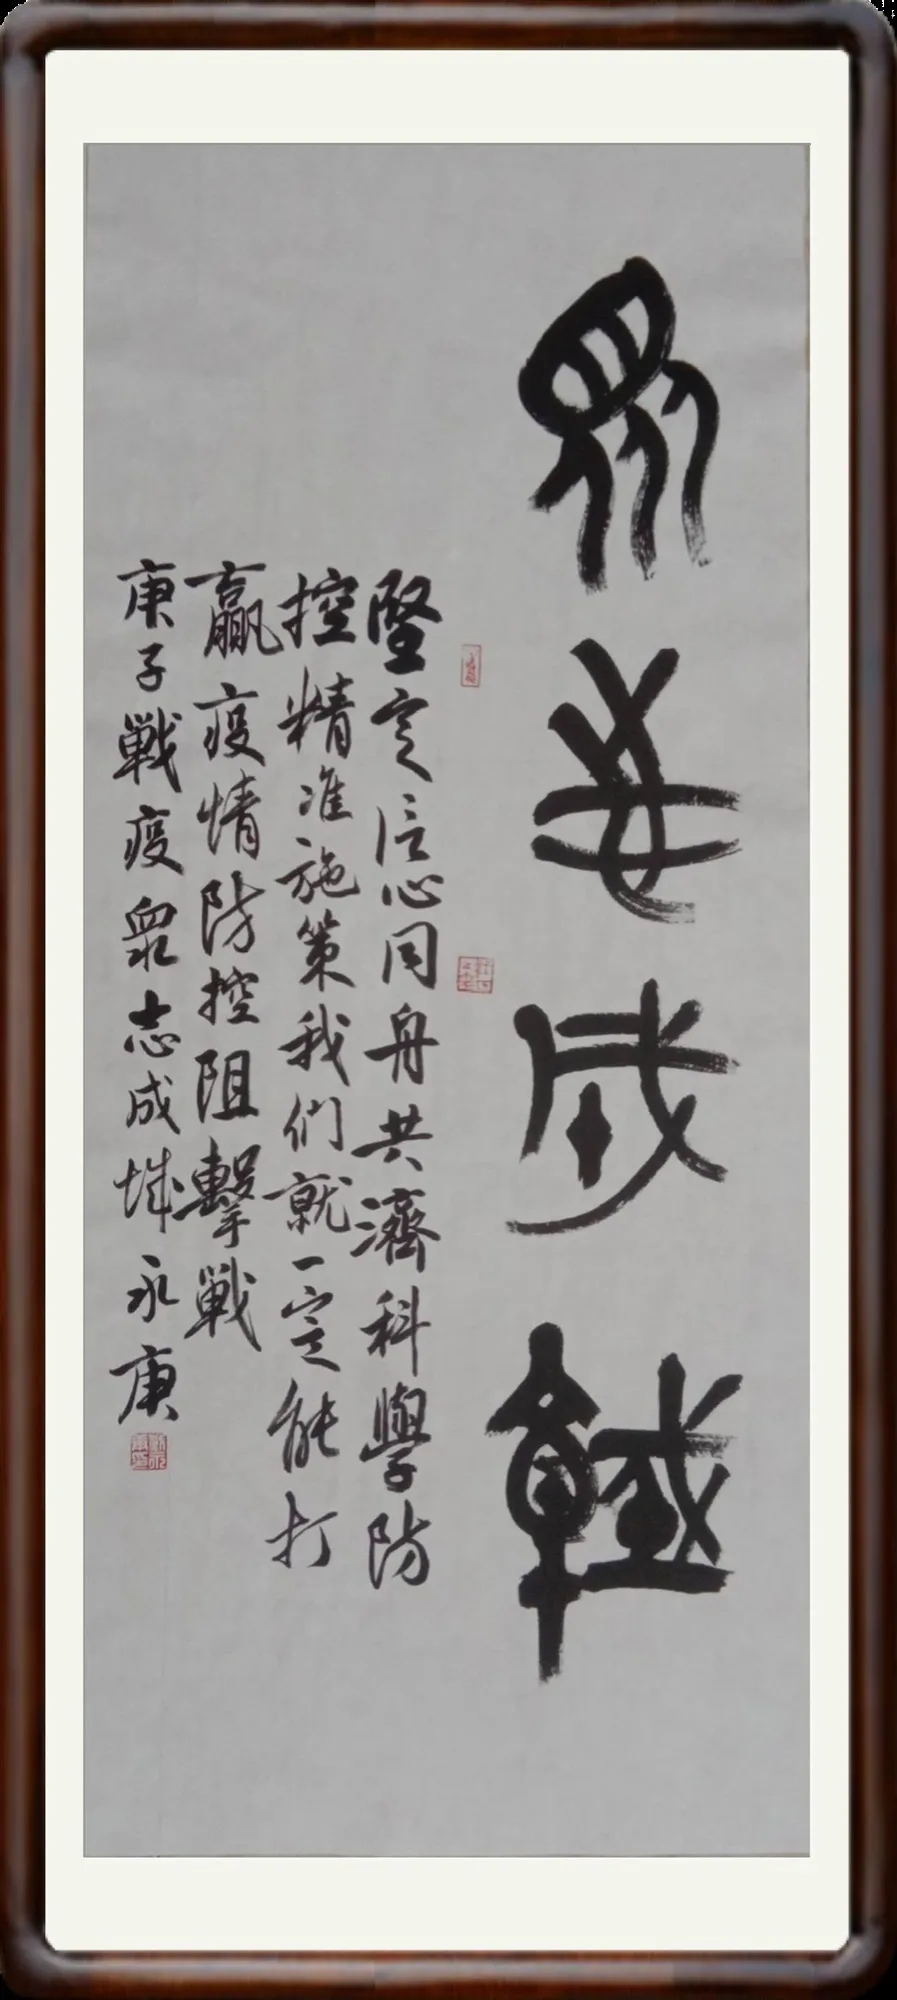 眾志成城
堅定信心同舟共濟科學防
控精准施策我们就一定能打
贏疫情防控阻擊戰
庚子戰疫眾志成城永庚